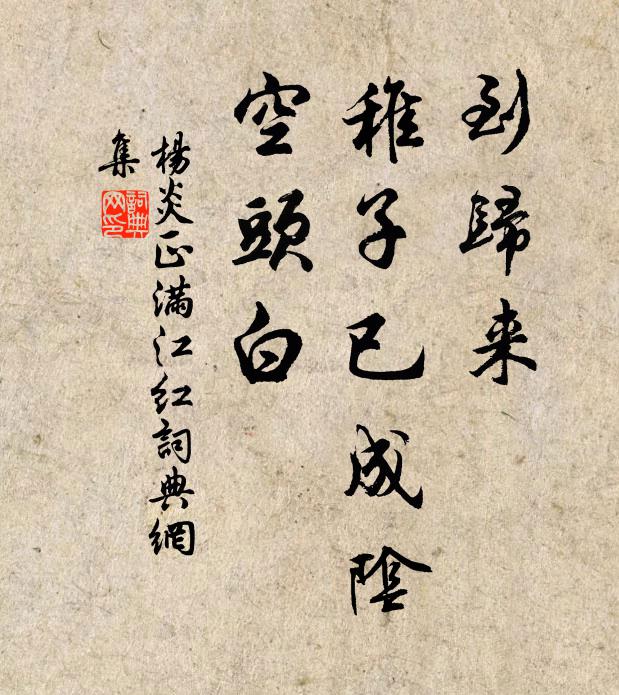 到歸来
稚子已成陰
空頭白
楊炎正滿江红詞典網
集
詞典
网印